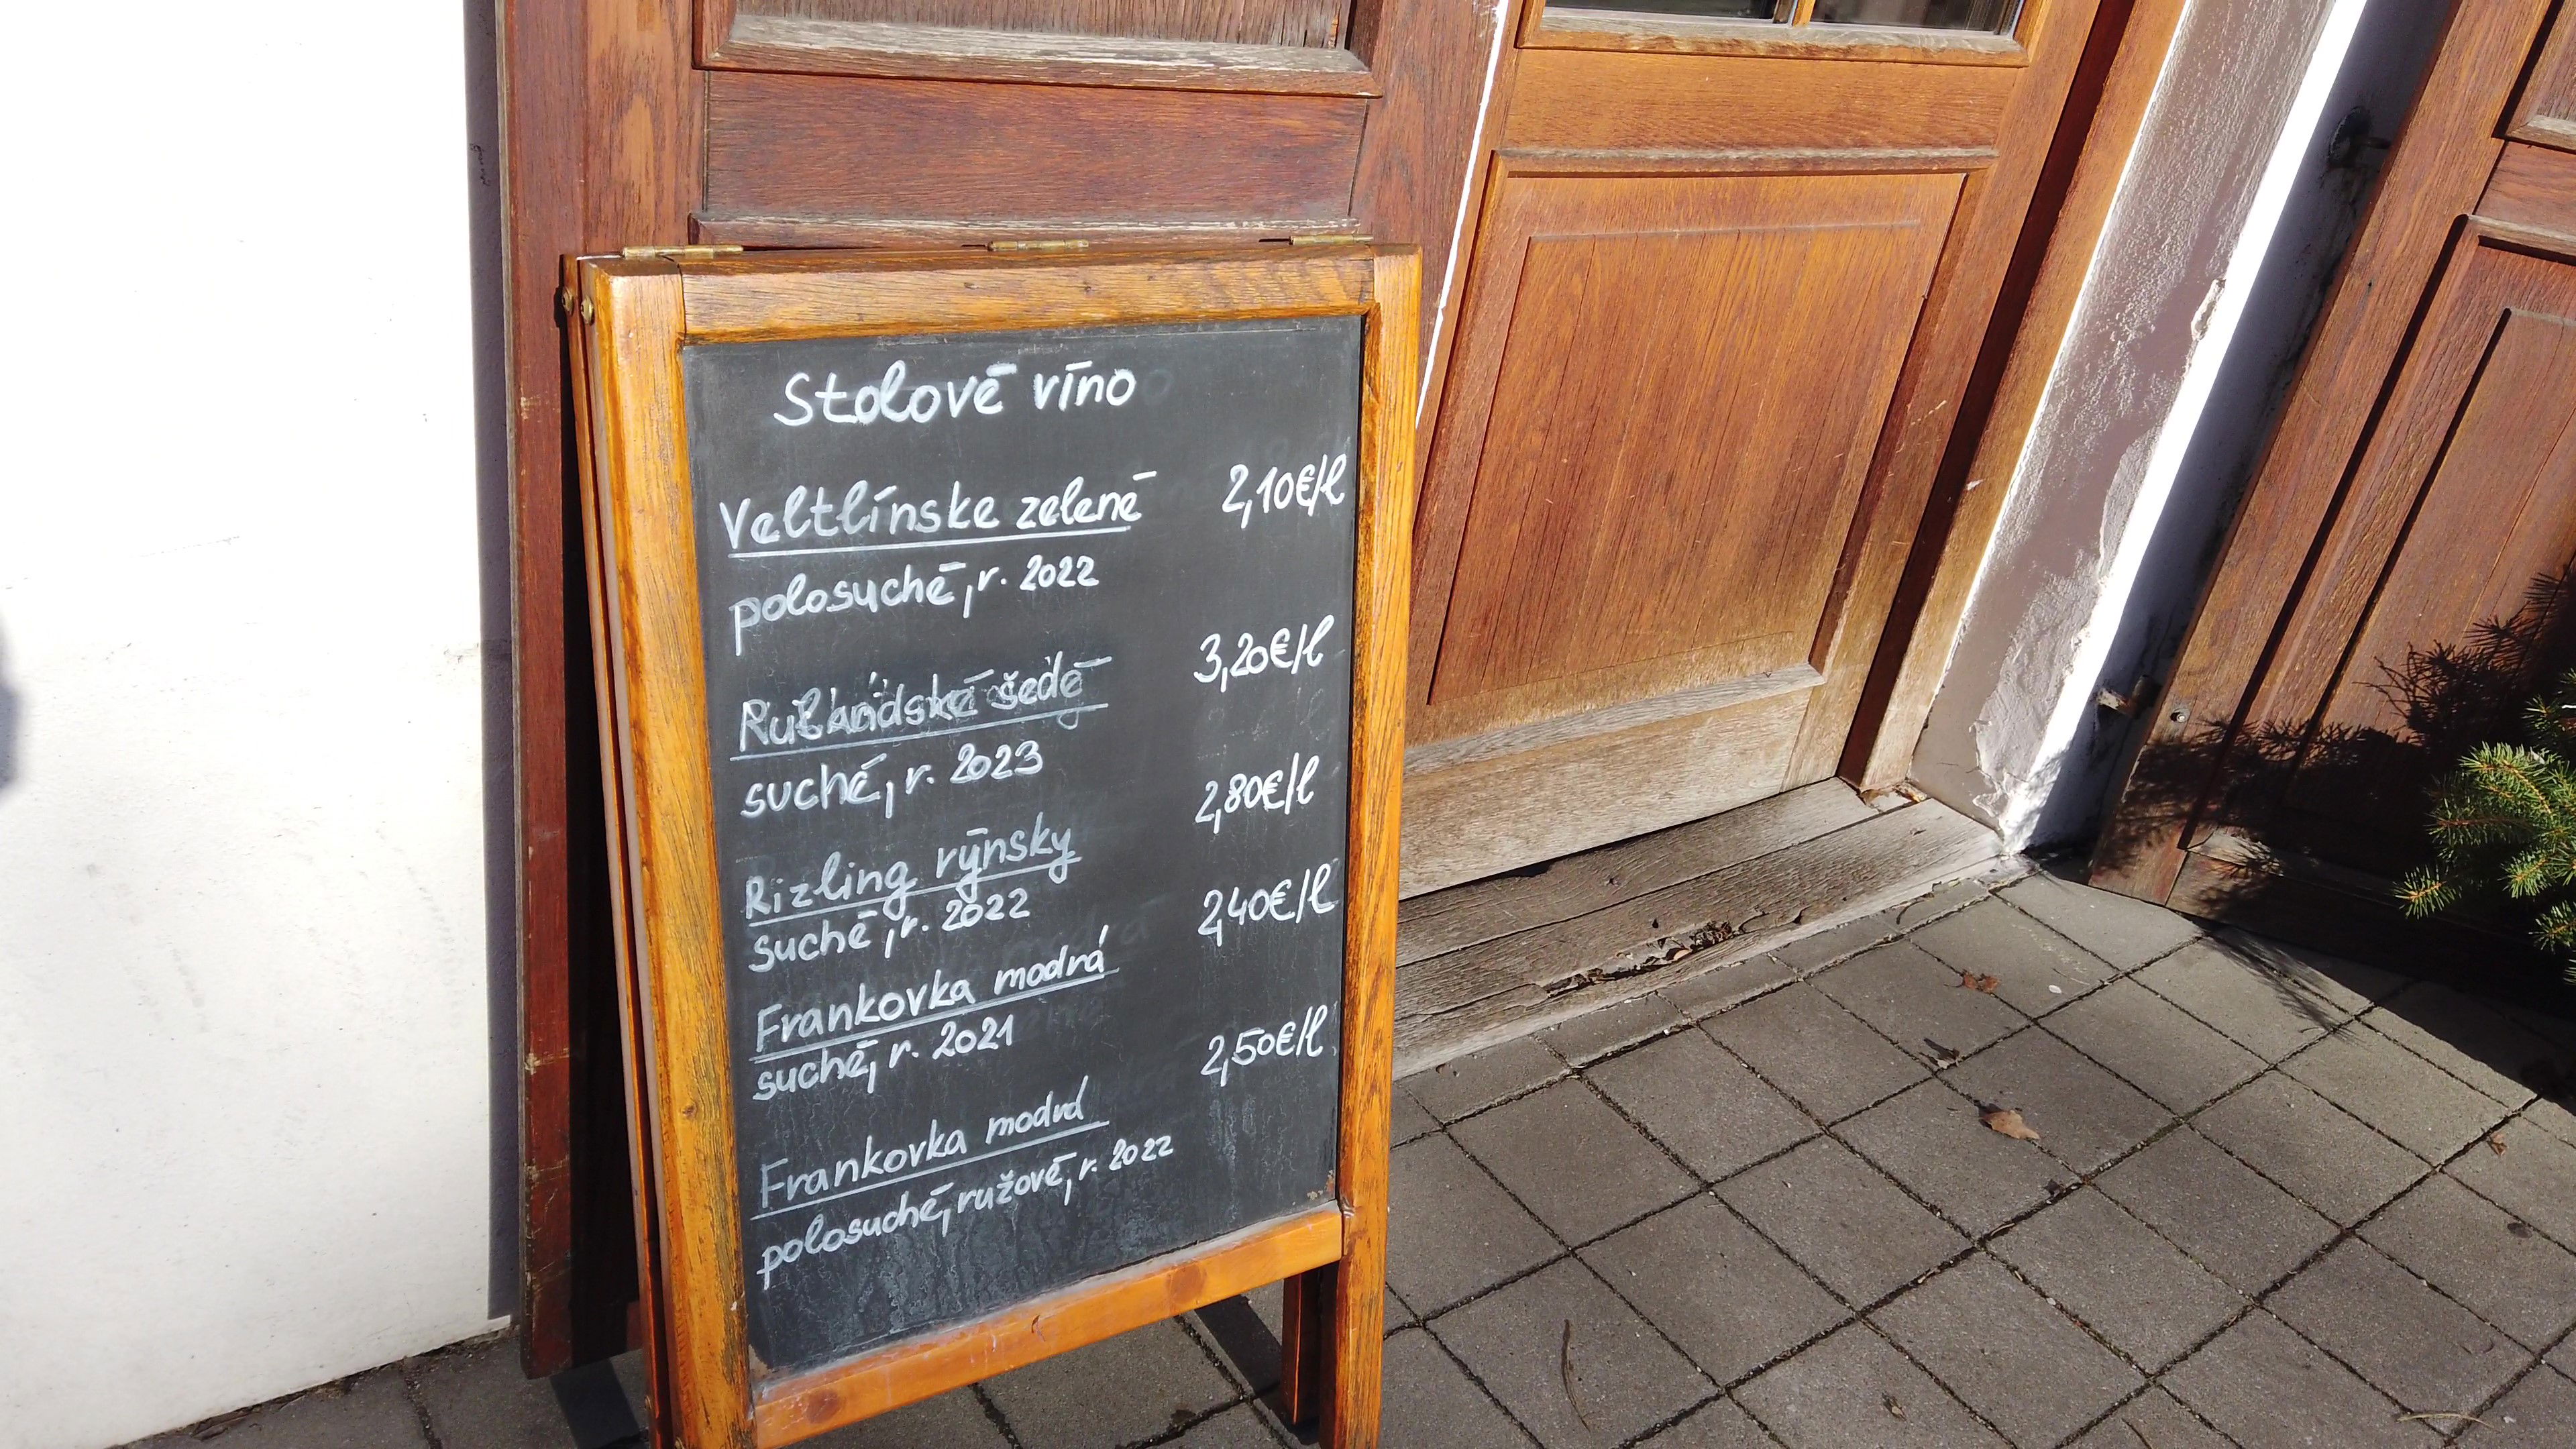 Stolové víno
Veltlínske zelené 2,10€/l
polosuché, r. 2022
Rulandské šedé 3,20€/l
suché, r. 2023
Rizling rýnsky 2,80€/l
suché, r. 2022
Frankovka modrá 2,40€/l
suché, r. 2021
Frankovka modrá 2,50€/l
polosuché, ružové, r. 2022